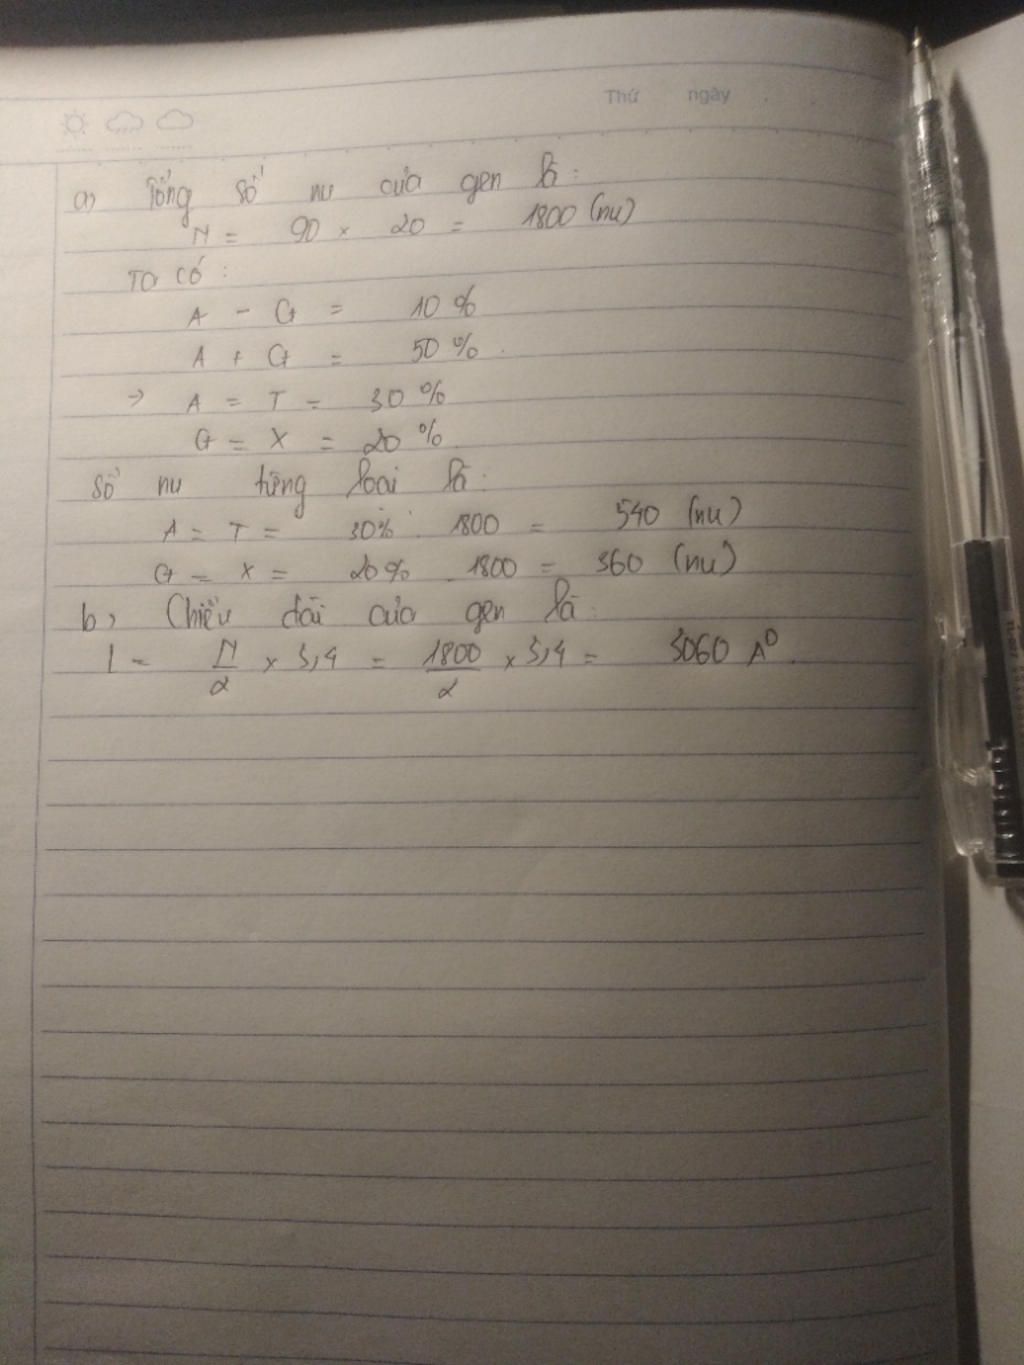 Thứ ngày
a) Tổng số nu của gen là:
N = 90 × 20 = 1800 (nu)
Ta có:
A - G = 10%
A + G = 50%.
→ A = T = 30%
G = X = 20%.
Số nu từng loại là:
A = T = 30% . 1800 = 540 (nu)
G = X = 20% . 1800 = 360 (nu)
b, Chiều dài của gen là:
l = N/2 × 3,4 = 1800/2 × 3,4 = 3060 A⁰.